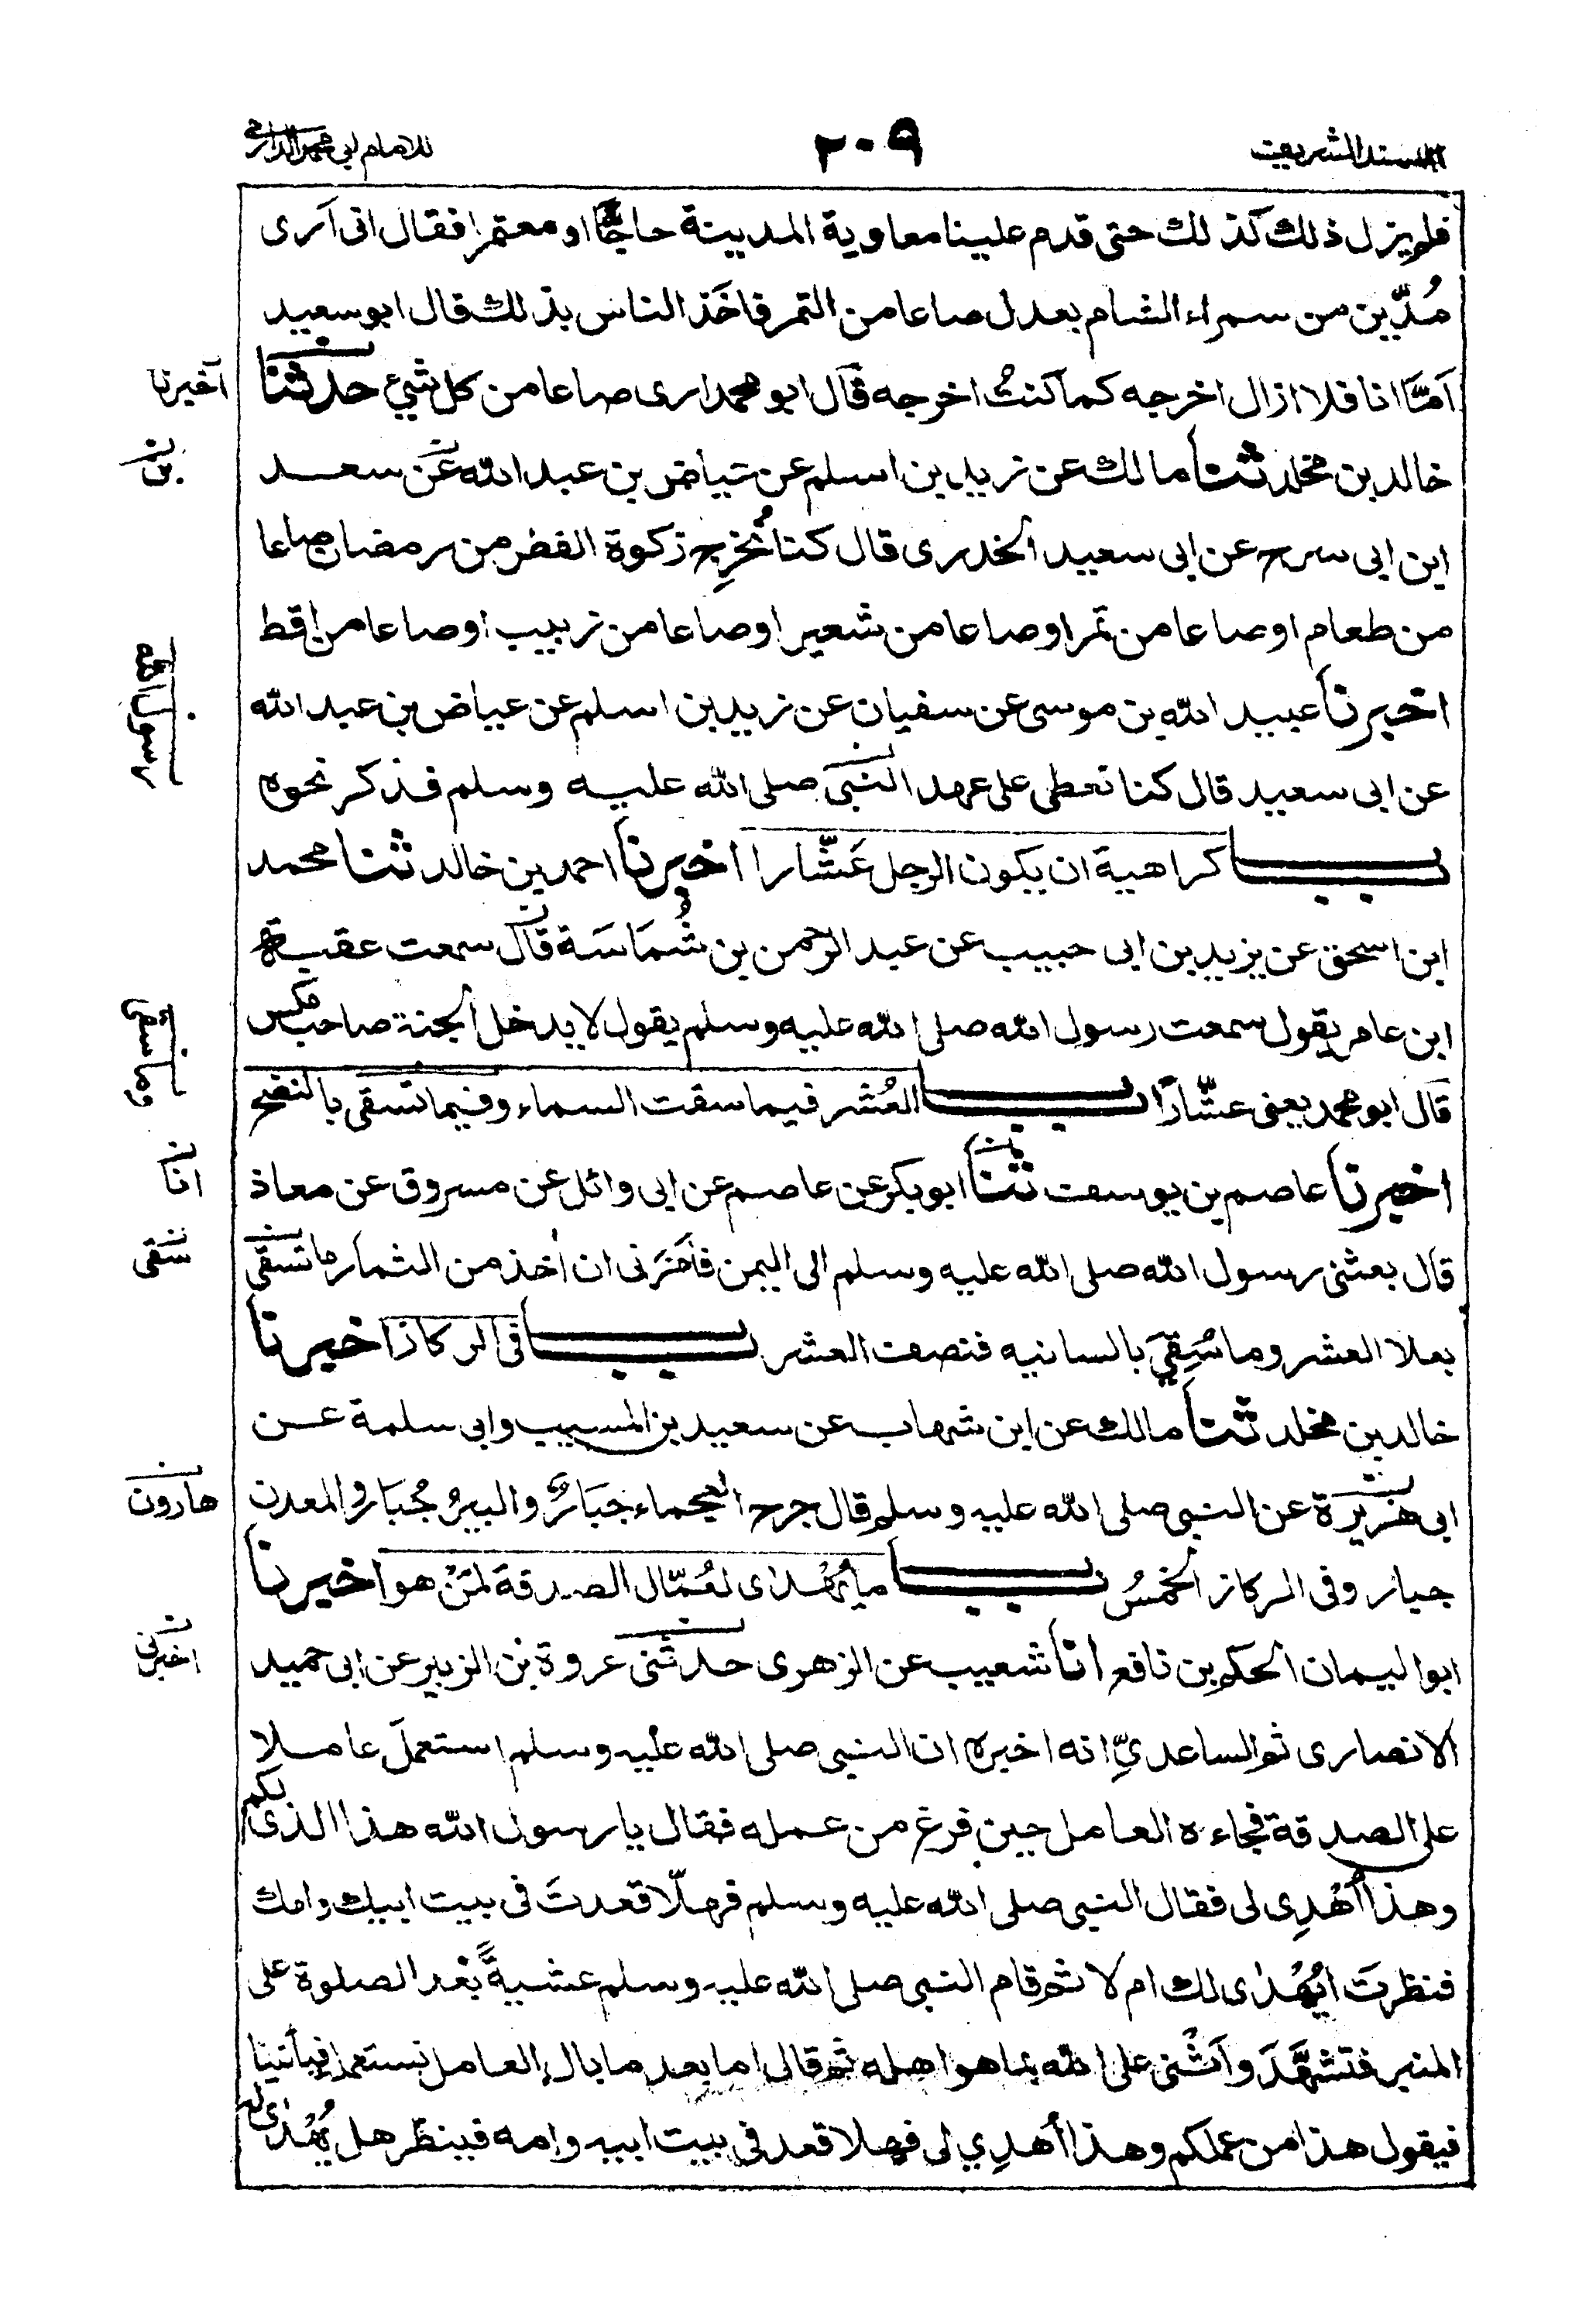 المسند الشريف
٢٠٩
للامام ابي محمد الدارمي
فلم يزل ذلك كذلك حتى قدم علينا معاوية المدينة حاجًّا او معتمرا فقال انى اَرى
مُدّين من سمراء الشام بعدل صاعا من التمر فاخَذ الناس بذلك قال ابو سعيد
اَمَّا انا فلا ازال اخرجه كما كنتُ اخرجه قَال ابو محمد ارى صاعا من كل شيئ حدثنا
اخبرنا
خالد بن مخلد ثنا مالك عن زيد بن اسلم عن عياض بن عبد الله عَن سعد
بن
ابن ابى سرح عن ابى سعيد الخدرى قال كنا نُخرِج زكوة الفطر من رمضان صاعا
من طعام او صاعا من تمر او صاعا من شعير او صاعا من زبيب او صاعا من اقط
اخبرنا عبيد الله بن موسى عن سفيان عن زيد بن اسلم عن عياض بن عبد الله
رسول الله
عن ابى سعيد قال كنا نعطى على عهد النبى صلى الله عليه وسلم فذكر نحوه
باب كراهية ان يكون الرجل عَشّارا اخبرنا احمد بن خالد ثنا محمد
ابن اسحق عن يزيد بن ابى حبيب عن عبد الرحمن بن شُمَاسَة قال سمعت عقبة
ابن عامر يقول سمعت رسول الله صلى الله عليه وسلم يقول لا يدخل الجنة صاحب مكس
وما سقى
قال ابو محمد يعنى عشّارًا باب العُشر فيما سقت السماء وفيما تسقى بالنضح
اخبرنا عاصم بن يوسف ثنا ابو بكر عن عاصم عن ابى وائل عن مسروق عن معاذ
انا
قال بعثنى رسول الله صلى الله عليه وسلم الى اليمن فأمَرَنى ان اٰخذ من الثمار ما تسقى
سقى
بعلا العشر وما سُقِيَ بالسانيه فنصف العشر باب فى الركاز اخبرنا
خالد بن مخلد ثنا مالك عن ابن شهاب عن سعيد بن المسيب وابى سلمة عن
ابى هُريرة عن النبى صلى الله عليه وسلم قال جرح العجماء جُبَارٌ والبيرُ جُبَار والمعدن
هارون
جبار وفى الركاز الخمسُ باب ما يُهْدٰى لعُمّال الصدقة لمَنْ هو اخبرنا
ابو اليمان الحكم بن نافع انا شعيب عن الزهرى حدثنى عروة بن الزبير عن ابى حميد
اخبرنى
الانصارى ثم الساعدىِّ انه اخبره ان النبى صلى الله عليه وسلم استعملَ عاملا
على الصدقة فجاءه العامل حين فرغ من عمله فقال يا رسول الله هذا الذى لكم
وهذا اُهْدِى لى فقال النبى صلى الله عليه وسلم فهلّا قعدتَ فى بيت ابيك وامك
فنظرتَ ايُهْدٰى لك ام لا ثم قام النبى صلى الله عليه وسلم عشيةً بَعْد الصلوة على
المنبر فتشهَّدَ واَثْنى على الله بما هو اهله ثم قال اما بعد ما بال العامل نستعمله فيأتينا
فيقول هذا من عملكم وهذا أهدِي لى فهلا قعد فى بيت ابيه وامه فينظر هل يُهْدٰى له